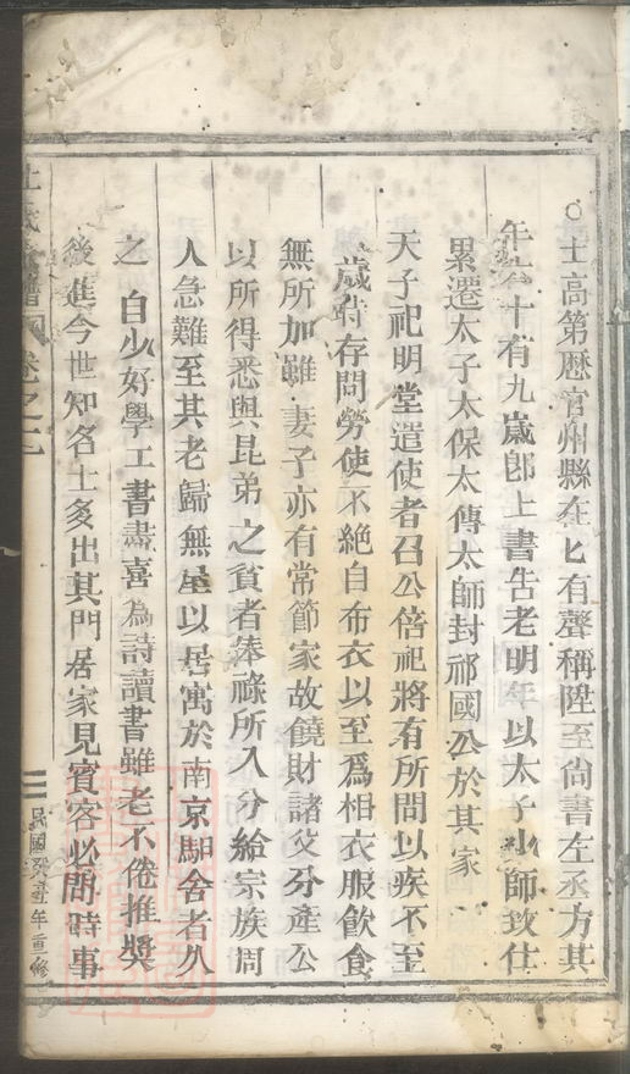 士高第歷官州縣在匕有聲稱陞至尚書左丞方其
年六十有九歲卽上書告老明年以太子少師致仕
累遷太子太保太傅太師封祁國公於其家
天子祀明堂遣使者召公偣祀將有所問以疾不至
歲時存問勞使不絕自布衣以至爲相衣服飮食
無所加雖妻子亦有常節家故饒財諸父分產公
以所得悉與昆弟之貧者俸祿所入分給宗族周
人急難至其老歸無屋以居寓於南京馹舍者久
之 自少好學工書畫喜為詩讀書雖老不倦推奬
後進今世知名士多出其門居家見賓客必問時事
杜氏 譜 卷之三
三
民國癸丑年重修